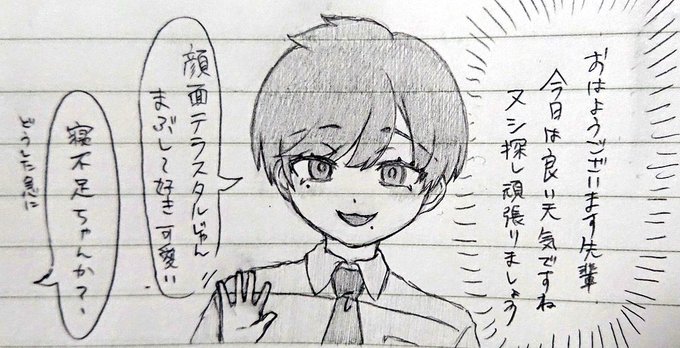 おはようございます先輩
今日は良い天気ですね
ヌシ探し頑張りましょう
顔面テラスタルじゃん
まぶしくて好き可愛い
寝不足ちゃんか?
どうした急に